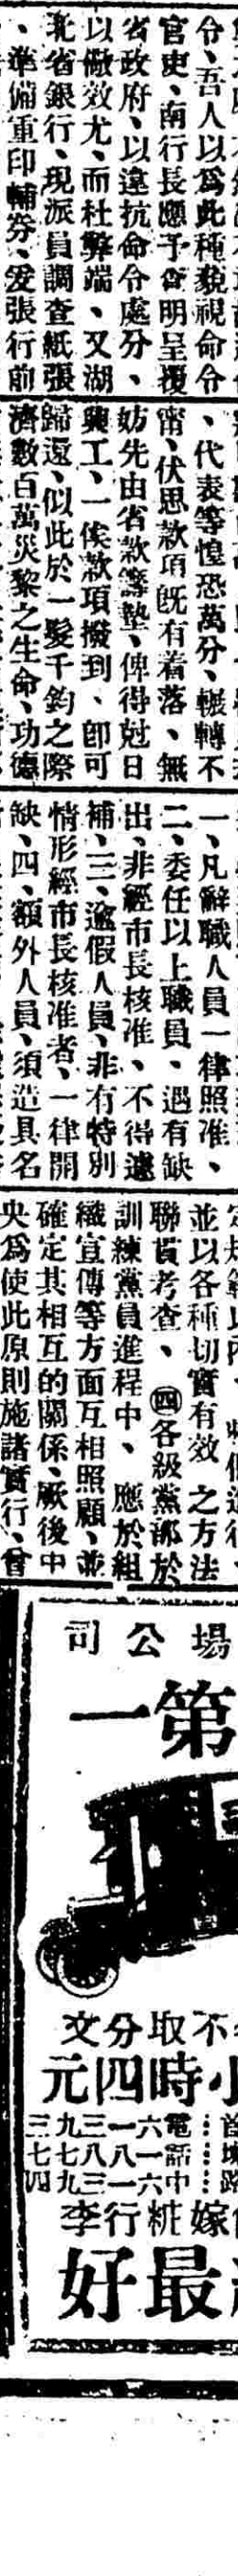 令、吾人以爲此種藐視命令
官吏、南行長應予查明呈覆
省政府、以違抗命令處分、
以儆效尤、而杜弊端、又湖
北省銀行、現派員調查紙張
、準備重印輔券、爰張行前
、代表等惶恐萬分、輾轉不
甯、伏思款項旣有着落、無
妨先由省款籌墊、俾得尅日
興工、一俟款項撥到、卽可
歸還、似此於一髮千鈞之際
濟數百萬災黎之生命、功德
一、凡辭職人員一律照准、
二、委任以上職員、遇有缺
出、非經市長核准、不得遞
補、三、逾假人員、非有特別
情形經市長核准者、一律開
缺、四、額外人員、須造具名
並以各種切實有效之方法
聯貫考查、㊃各級黨部於
訓練黨員進程中、應於組
織宣傳等方面互相照顧、並
確定其相互的關係、厥後中
央爲使此原則施諸實行、曾
場公司
第一
不取分文
小時四元
電話中
六一六一
一八一
三八三
九七九
三七四
嫁粧行李
最好